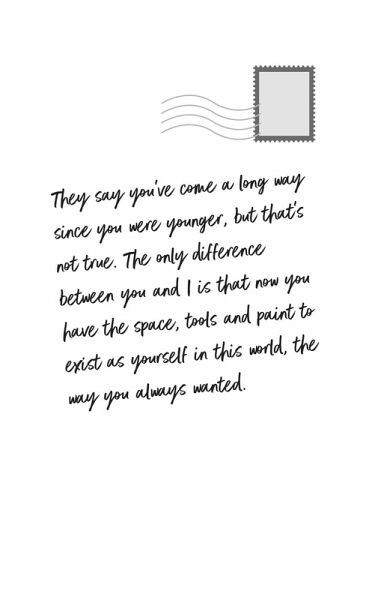 They say you've come a long way
since you were younger, but that's
not true. The only difference
between you and I is that now you
have the space, tools and paint to
exist as yourself in this world, the
way you always wanted.